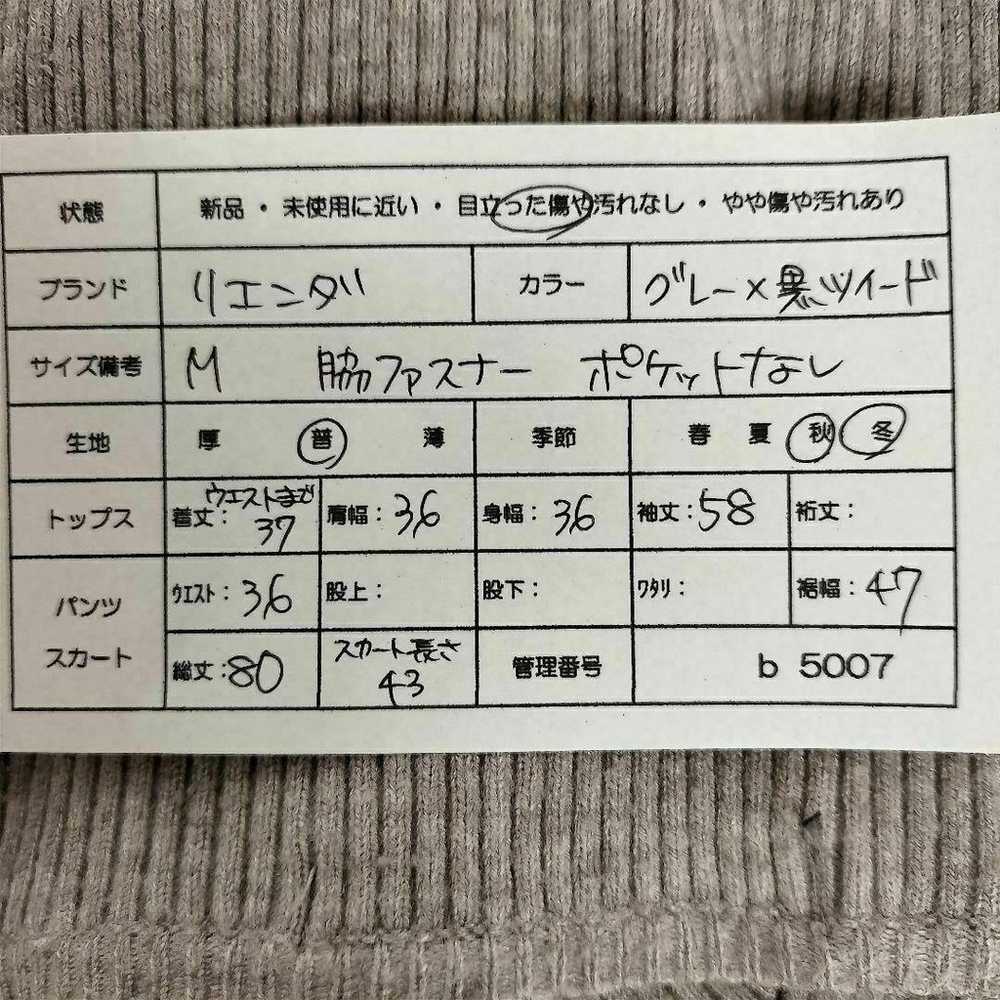 状態 新品・未使用に近い・目立った傷や汚れなし・やや傷や汚れあり
ブランド リエンダ カラー グレー×黒ツイード
サイズ備考 M 脇ファスナー ポケットなし
生地 厚 普 薄 季節 春 夏 秋 冬
トップス 着丈：ウエストまで 37 肩幅：36 身幅：36 袖丈：58 裄丈：
パンツ スカート ウエスト：36 股上： 股下： ワタリ： 裾幅：47
総丈：80 スカート長さ 43 管理番号 b 5007